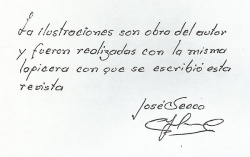 La ilustraciones son obra del autor
y fueron realizadas con la misma
lapicera con que se escribió esta
revista
José Seoco